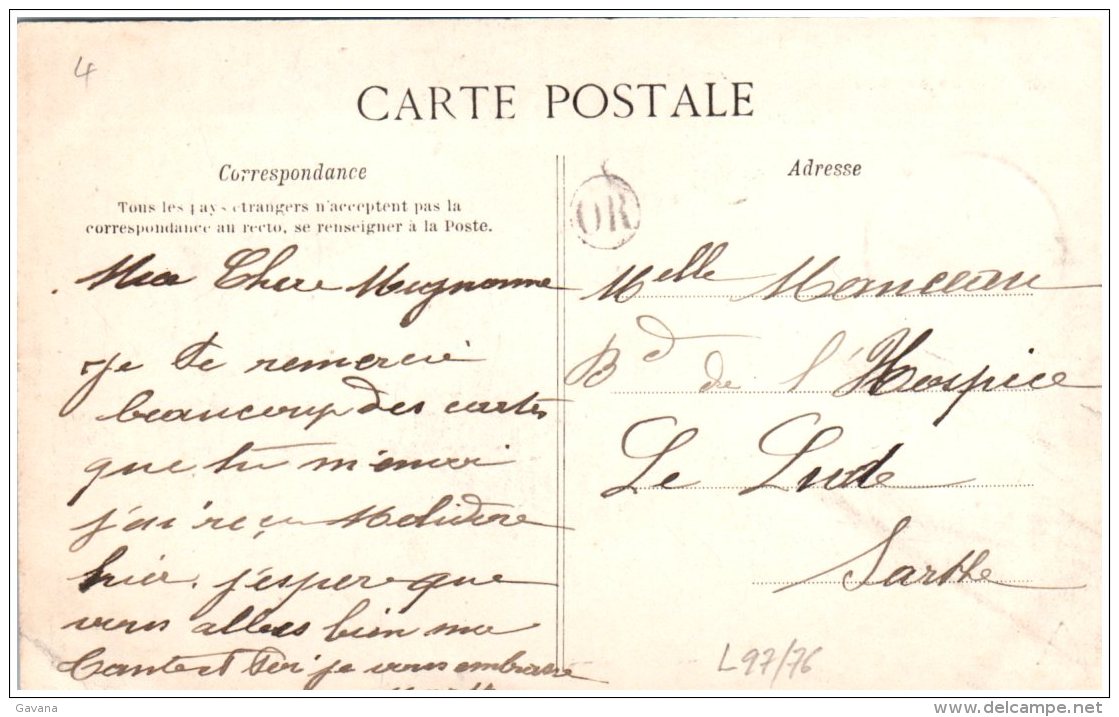 4
CARTE POSTALE
Correspondance
Tous les pays etrangers n'acceptent pas la
correspondance au recto, se renseigner à la Poste.
Ma Chere Mignonne
Je te remercie
beaucoup des cartes
que tu m'envoi
j'ai reçu
hier. j'espere que
vous allez bien ma
Tante et toi je vous embrasse
Adresse
OR
Melle Manceau
Bd de l'Hospice
Le Lude
Sarthe
L97/76
Gavana
delcampe.net